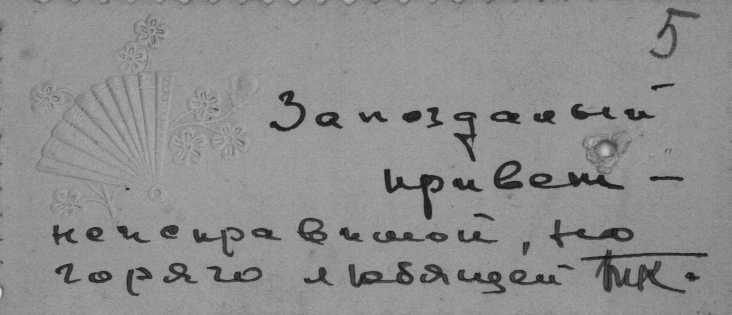 5
Запоздалый
привет —
неисправимой, но
горячо любящей